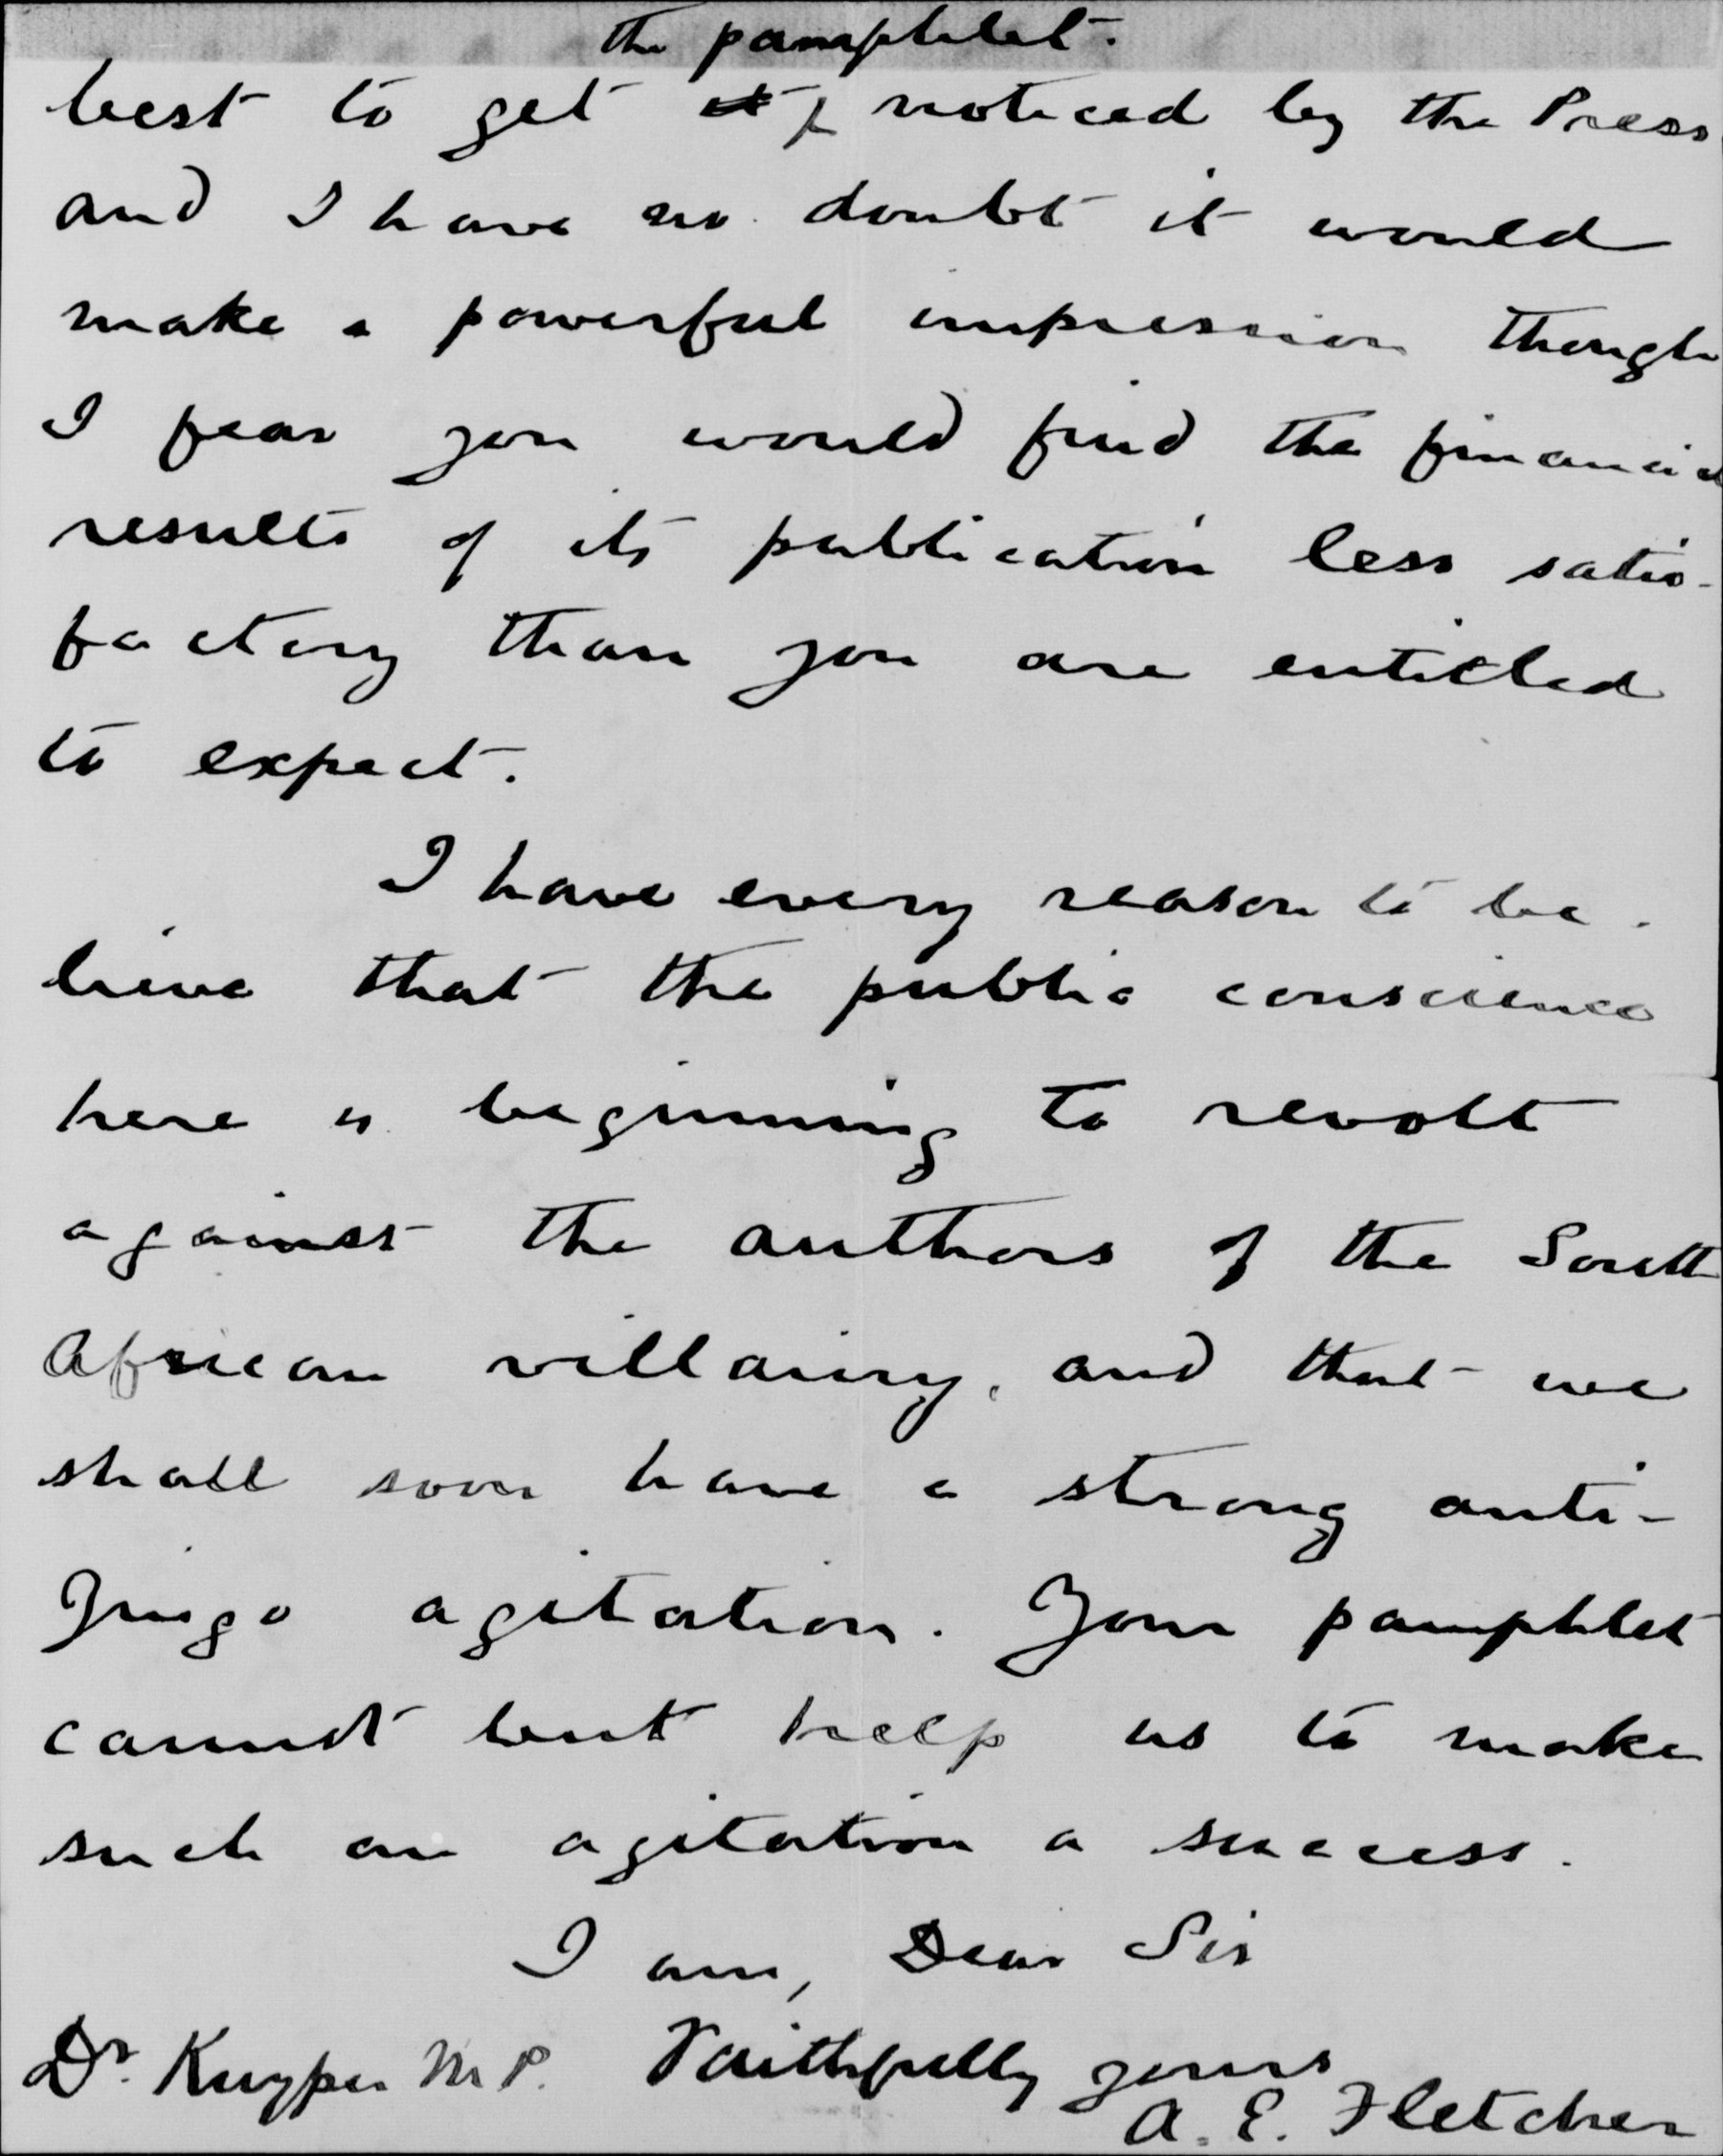 the pamphlet.
best to get it noticed by the Press
and I have no doubt it would
make a powerful impression though
I fear you would find the financial
results of its publication less satis-
factory than you are entitled
to expect.
I have every reason to be-
lieve that the public conscience
here is beginning to revolt
against the authors of the South
African villainy, and that we
shall soon have a strong anti-
Jingo agitation. Your pamphlet
cannot but help us to make
such an agitation a success.
I am, Dear Sir
Dr. Kuyper M.P. Faithfully yours
A. E. Fletcher